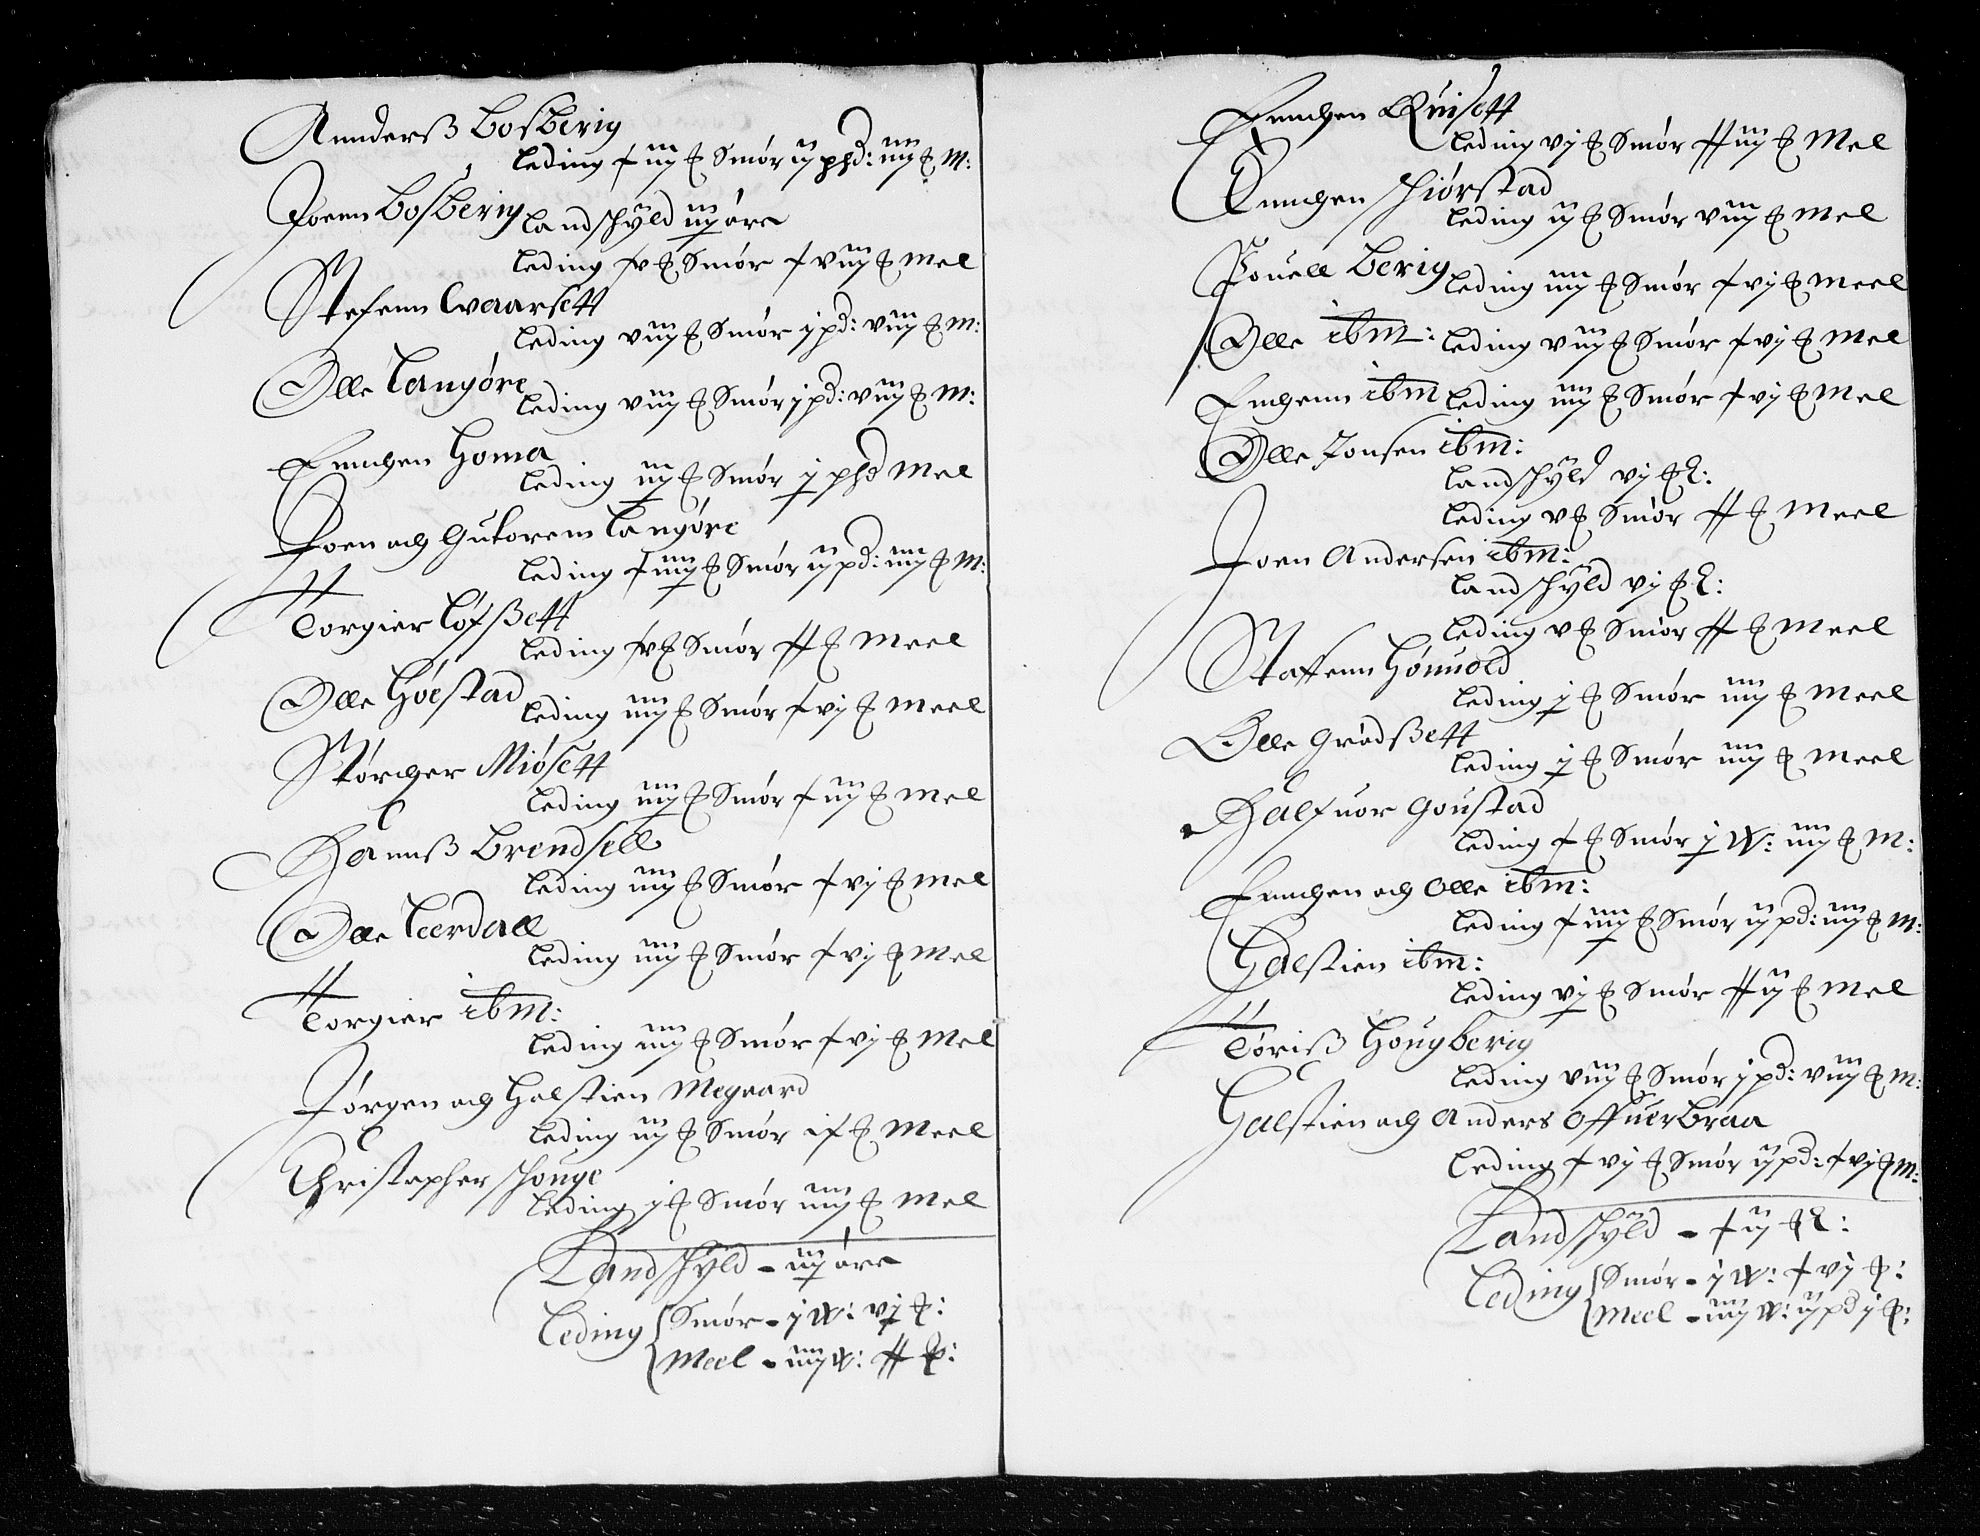 Annderß Bosberig
Leding x iij ℔ Smör ij pd: iiij ℔ M:
Joenn Bosberig
Landschyld iij öre
Leding xv ℔ Smör x viij ℔ Mel
Stefenn Evaarsett
Leding viij ℔ Smör j pd: viij ℔ M:
Olle Langöre
Leding viij ℔ Smör j pd: viij ℔ M:
Enichen Homa
Leding iij ℔ Smör j pd Mel
Joen och Gutorem Langöre
Leding x iiij ℔ Smör ij pd: iiij ℔ M:
Torgier Löfßett
Leding xv ℔ Smör xx ℔ Meel
Olle Höestad
Leding iiij ℔ Smör x vj ℔ Meel
Störcher Miösett
Leding iiij ℔ Smör x iij ℔ Mel
Hannß Brendsell
Leding iiij ℔ Smör x vj ℔ Mel
Olle Leerdall
Leding iiij ℔ Smör x vj ℔ Mel
Torgier ibm:
Leding iiij ℔ Smör x vj ℔ Mel
Jörgen och Halstien Megaard
Leding iij ℔ Smör ix ℔ Meel
Christopher Schouge
Leding j ℔ Smör iiij ℔ Mel
Landschyld - iij öre
Leding
Smör - j W: vj ℔:
Meel - iiij W: xx ℔:
Enichen Quisett
Leding vj ℔ Smör xx iij ℔ Mel
Enichen Schiörstad
Leding ij ℔ Smör viij ℔ Mel
Pouell Berig
Leding iiij ℔ Smör x vj ℔ Meel
Olle ibm:
Leding viij ℔ Smör x vj ℔ Mel
Enichenn ibm
Leding iiij ℔ Smör x vj ℔ Mel
Olle Jonsen ibm:
Landschyld vj ℔:
Leding v ℔ Smör xx ℔ Meel
Joen Andersen ibm:
Landschyld vj ℔:
Leding v ℔ Smör xx ℔ Meel
Staffenn Hönuold
Leding j ℔ Smör iiij ℔ Meel
Olle Grödßett
Leding j ℔ Smör iiij ℔ Meel
Halfuor Goustad
Leding x ℔ Smör j W: iiij ℔ M:
Enichen och Olle ibm:
Leding x iiij ℔ Smör ij pd: iiij ℔ M:
Halstien ibm:
Leding vj ℔ Smör xx ij ℔ Mel
Toriß Hougberig
Leding viij ℔ Smör j pd: viij ℔ M:
Halstien och Anders Offuerbraa
Leding x vj ℔ Smör ij pd: x vj ℔ M:
Landschyld - x ij ℔:
Leding
Smör - j W: x vj ℔:
Meel - iiij W: ij pd j ℔: